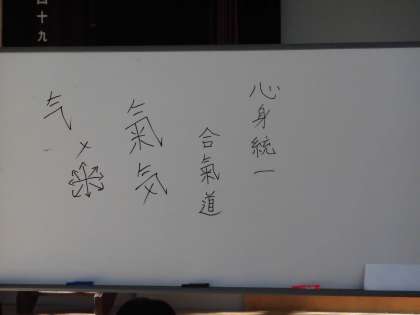 心身統一
合氣道
氣気
气
メ
十九